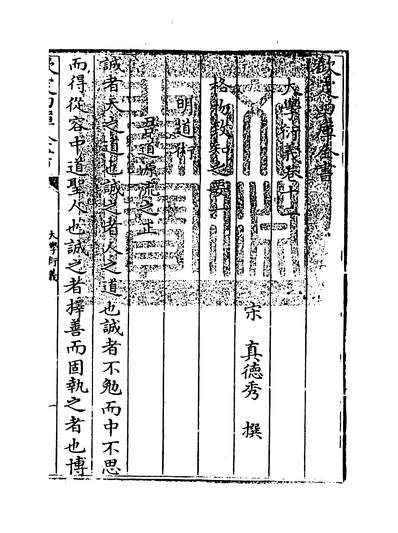 欽定四庫全書
大學衍義卷十一
宋 真德秀 撰
格物致知之要一
明道術
吾道源流之正
誠者天之道也誠之者人之道也誠者不勉而中不思
而得從容中道聖人也誠之者擇善而固執之者也博
欽定四庫全書
大學衍義